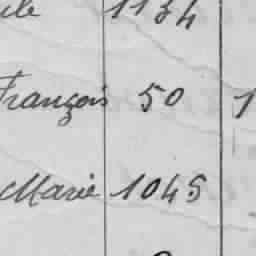 ile 1134
François 50 1
Marie 1045